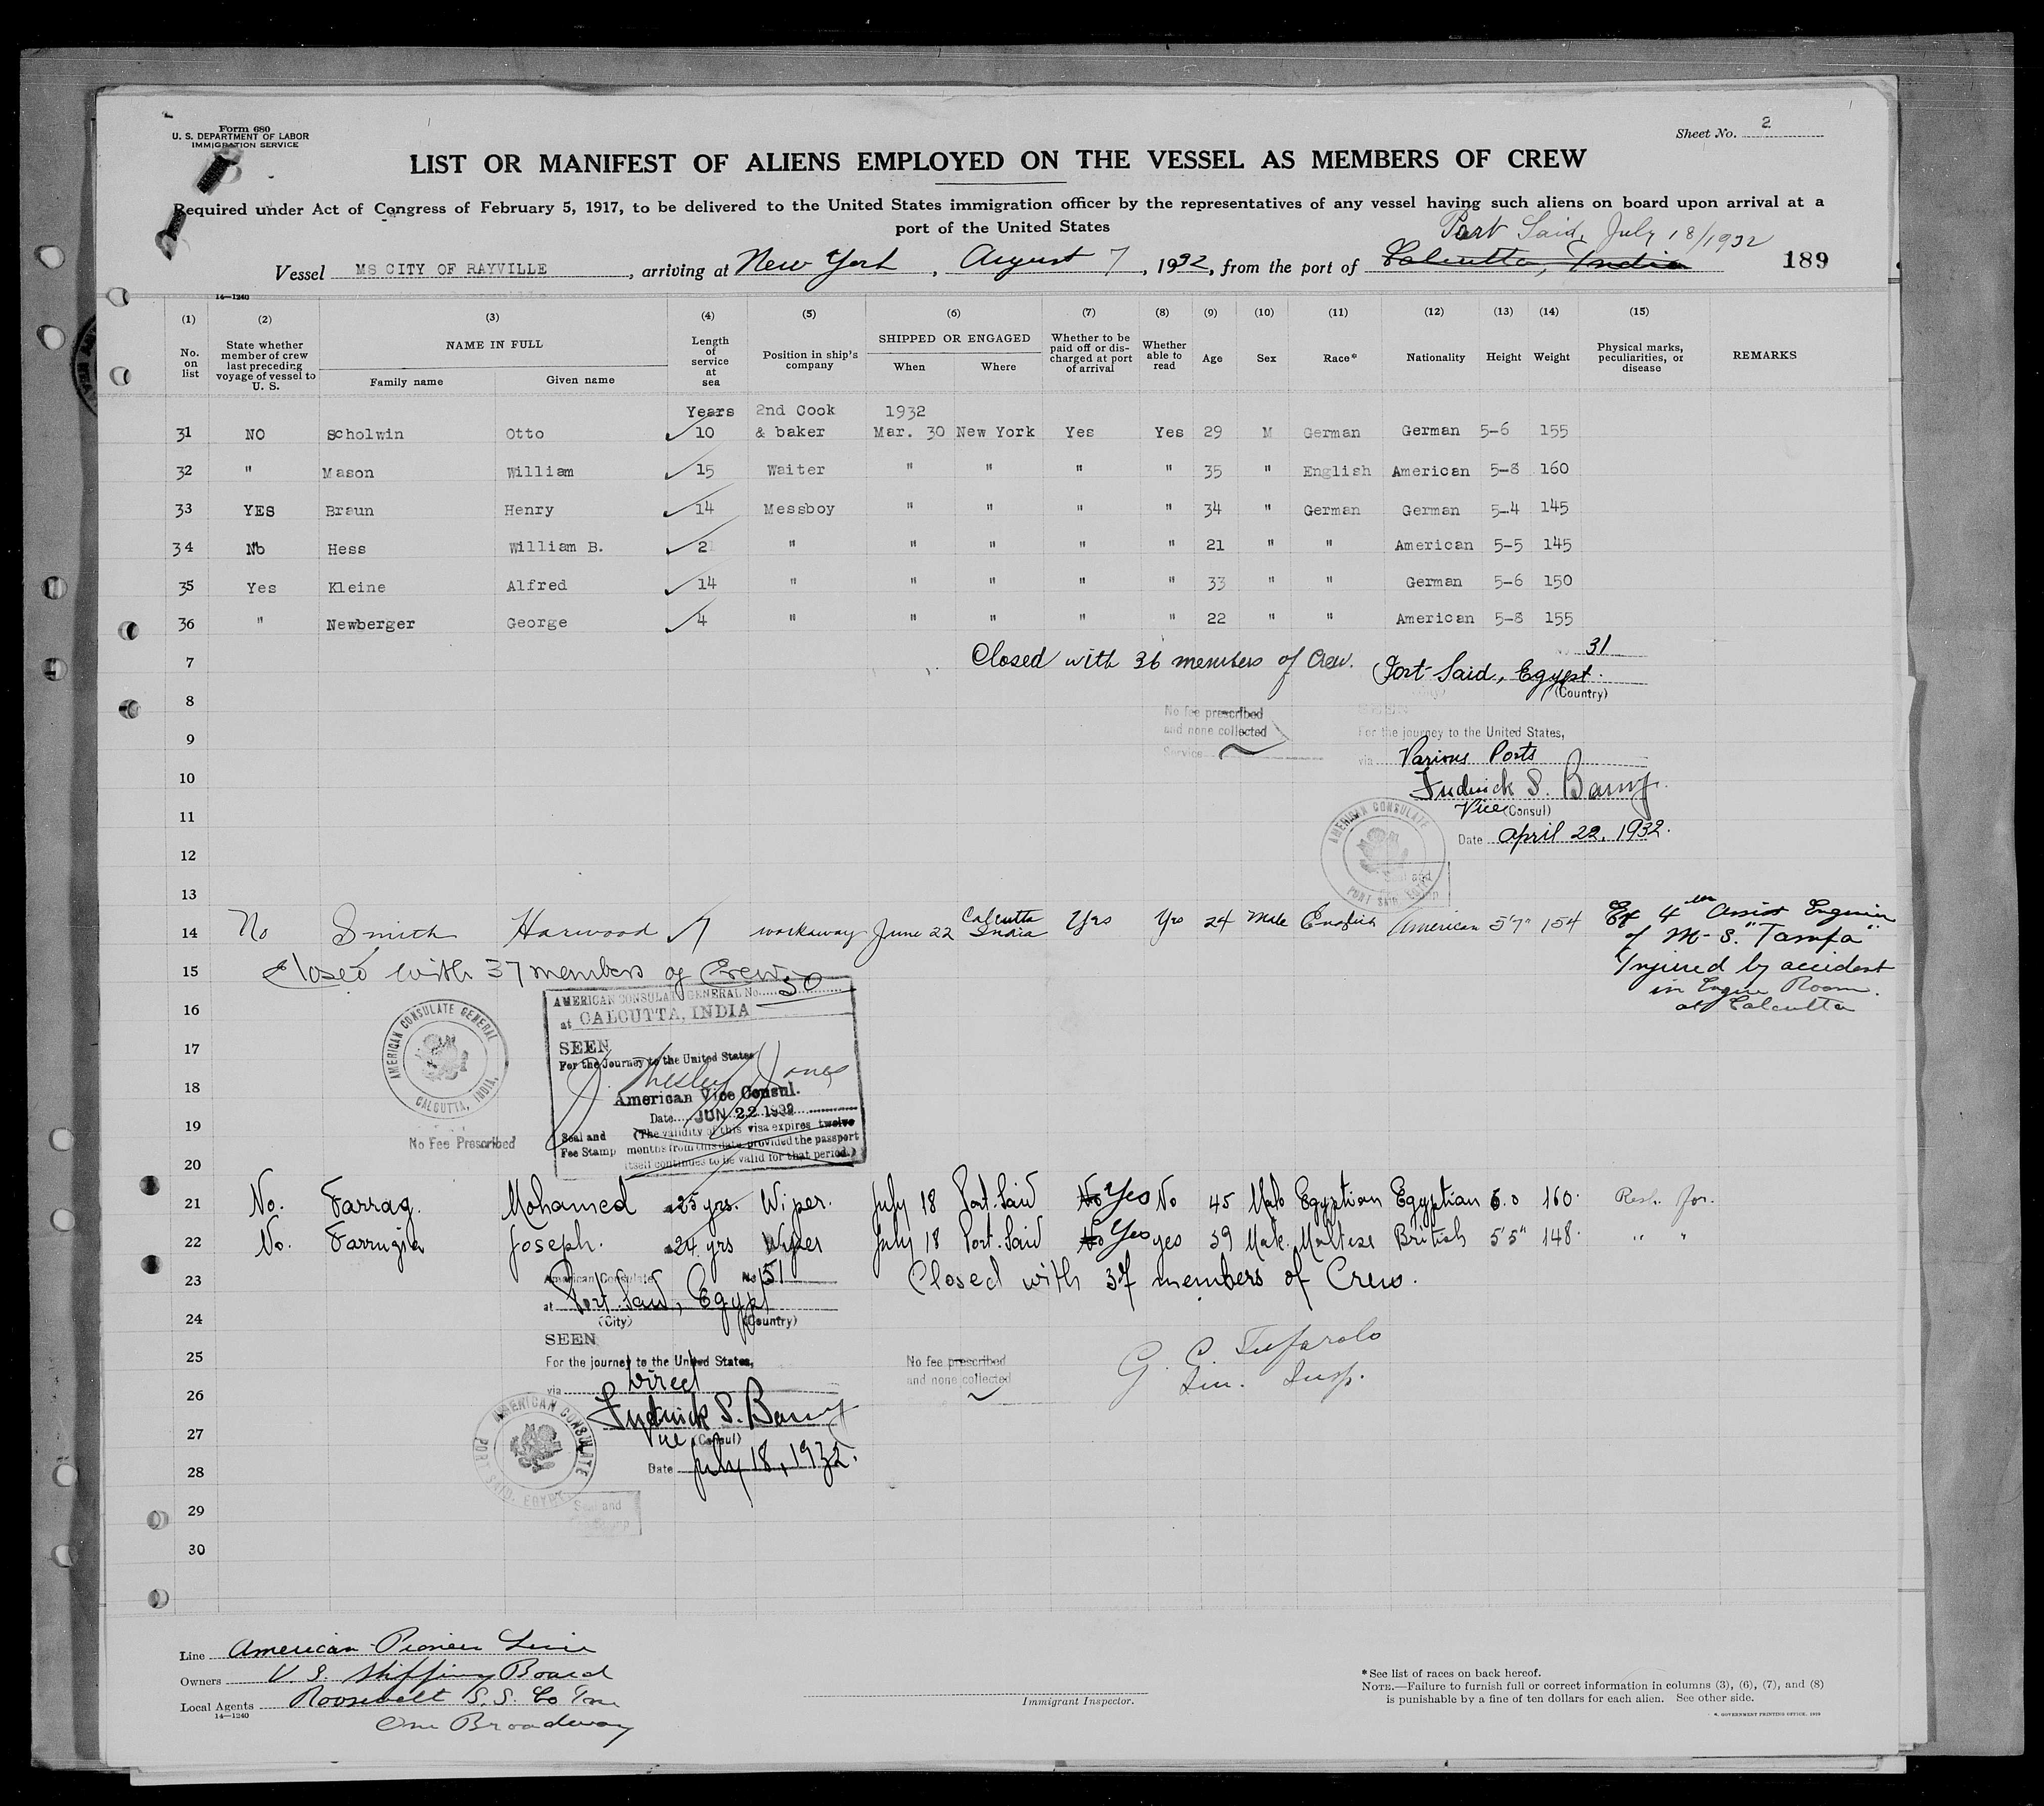 Form 680
U. S. DEPARTMENT OF LABOR
IMMIGRATION SERVICE
Sheet No. 2
LIST OR MANIFEST OF ALIENS EMPLOYED ON THE VESSEL AS MEMBERS OF CREW
Required under Act of Congress of February 5, 1917, to be delivered to the United States immigration officer by the representatives of any vessel having such aliens on board upon arrival at a
port of the United States
Port Said, July 18/1932
Vessel MS CITY OF RAYVILLE, arriving at New York, August 7, 1932, from the port of Calcutta, India 189
14—1240
(1) (2) (3) (4) (5) (6) (7) (8) (9) (10) (11) (12) (13) (14) (15)
No. on list
State whether member of crew last preceding voyage of vessel to U. S.
NAME IN FULL
Family name Given name
Length of service at sea
Position in ship's company
SHIPPED OR ENGAGED
When Where
Whether to be paid off or discharged at port of arrival
Whether able to read
Age Sex Race* Nationality Height Weight
Physical marks, peculiarities, or disease
REMARKS
Years 2nd Cook 1932
31 NO Scholwin Otto 10 & baker Mar. 30 New York Yes Yes 29 M German German 5-6 155
32 " Mason William 15 Waiter " " " " 35 " English American 5-8 160
33 YES Braun Henry 14 Messboy " " " " 34 " German German 5-4 145
34 No Hess William B. 2 " " " " " 21 " " American 5-5 145
35 Yes Kleine Alfred 14 " " " " " 33 " " German 5-6 150
36 " Newberger George 4 " " " " " 22 " " American 5-8 155
7 Closed with 36 members of Crew.
31
Port Said, Egypt.
(Country)
8
No fee prescribed
and none collected
Service
SEEN
9 For the journey to the United States,
via Various Ports
10 Fredrick S. Barny
Vice (Consul)
11
Date April 22, 1932.
AMERICAN CONSULATE
PORT SAID, EGYPT
12
13
14 No Smith Harwood 7 workaway June 22 Calcutta India Yes Yes 24 Male English American 5'7" 154 Ex 4th Assist Engineer
of M. S. "Tampa"
Injured by accident
in Engine Room.
at Calcutta
15 Closed with 37 members of Crew
AMERICAN CONSULATE GENERAL No. 50
at CALCUTTA, INDIA
16
SEEN
17 For the Journey to the United States
J. Wesley Jones
18 American Vice Consul.
Date JUN 22 1932
19 (The validity of this visa expires twelve
Seal and
Fee Stamp months from this date provided the passport
itself continues to be valid for that period.)
AMERICAN CONSULATE GENERAL
CALCUTTA, INDIA,
No Fee Prescribed
20
21 No. Farrag. Mohamed 25 yrs. Wiper. July 18 Port. Said No Yes No 45 Male Egyptian Egyptian 6.0 160.
22 No. Farrugia Joseph. 24 yrs Wiper July 18 Port. Said No Yes yes 39 Male. Maltese British 5'5" 148. " "
23 Closed with 37 members of Crew.
American Consulate No 51
at Port Said, Egypt
24 (City) (Country)
SEEN
25 For the journey to the United States,
via Direct
No fee prescribed
and none collected
26 Fredrick S. Barny
27 Vice (Consul)
28 Date July 18, 1932.
AMERICAN CONSULATE
PORT SAID, EGYPT.
Seal and
29
30
Line American Pioneer Line
Owners U. S. Shipping Board
Local Agents Roosevelt S.S. Co Inc
14—1240
One Broadway
Immigrant Inspector.
*See list of races on back hereof.
NOTE.—Failure to furnish full or correct information in columns (3), (6), (7), and (8)
is punishable by a fine of ten dollars for each alien. See other side.
U. S. GOVERNMENT PRINTING OFFICE. 1929